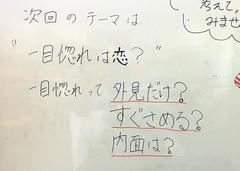 次回のテーマは
考えて。
みませ
"一目惚れは恋？"
一目惚れって外見だけ？
すぐさめる？
内面は？